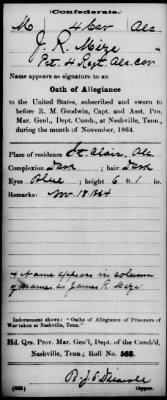 Confederate.
M 4 Cav Ala
J. R. Mize
Pvt. 4 Regt. Ala. Cav
Name appears as signature to an
Oath of Allegiance
to the United States, subscribed and sworn to
before R. M. Goodwin, Capt. and Asst. Pro.
Mar. Gen'l, Dept. Cumb., at Nashville, Tenn.,
during the month of November, 1864.
Place of residence St. Clair, Ala
Complexion Dark ; hair Dark
Eyes Blue ; height 6 ft. 1 in.
Remarks: Nov 18 1864
* Name appears in column
of names as James R. Mize
Indorsement shows: "Oaths of Allegiance of Prisoners of
War taken at Nashville, Tenn."
Hd. Qrs. Pro. Mar. Gen'l, Dept. of the Cumb.,
Nashville, Tenn; Roll No. 568.
Copyist.